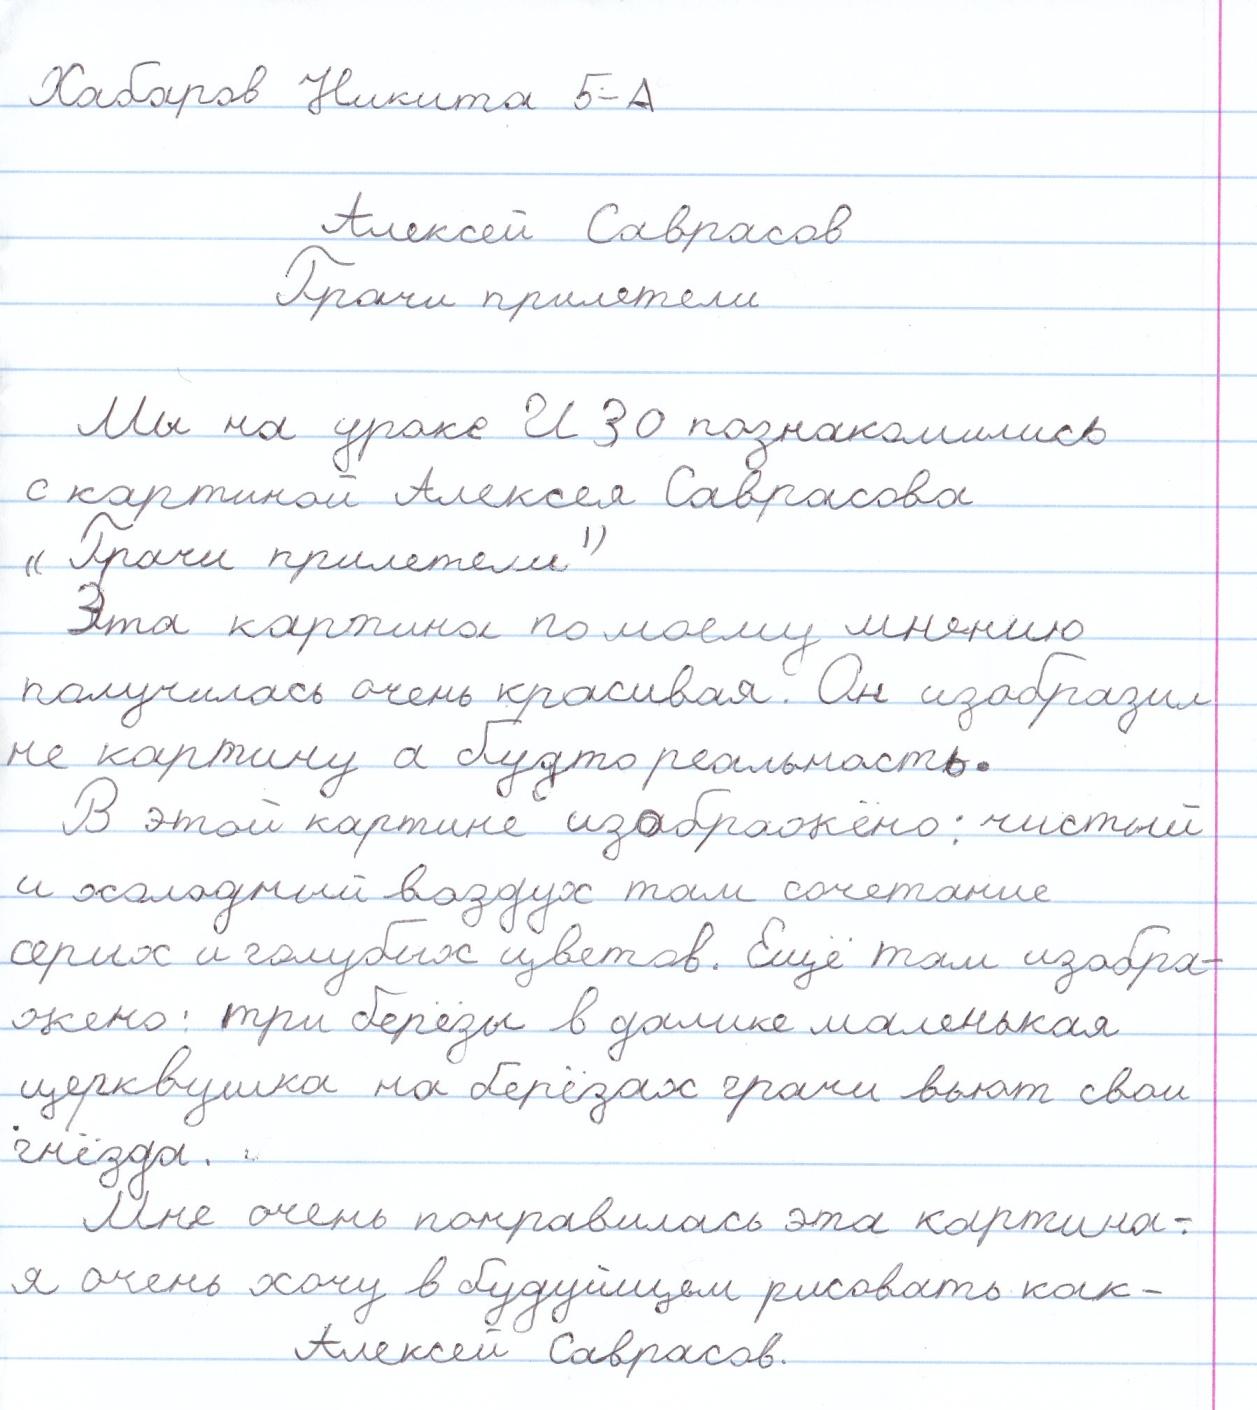 Хабаров Никита 5-А
Алексей Саврасов
Грачи прилетели
Мы на уроке ИЗО познакомились
с картиной Алексея Саврасова
„Грачи прилетели"
Эта картина по моему мнению
получилась очень красивая. Он изобразил
не картину а будто реальность.
В этой картине изображёно: чистый
и холодный воздух там сочетание
серых и голубых цветов. Ещё там изобра-
жено: три берёзы в далике маленькая
церквушка на берёзах грачи вьют свои
гнёзда.
Мне очень понравилась эта картина-
я очень хочу в будующем рисовать как-
Алексей Саврасов.